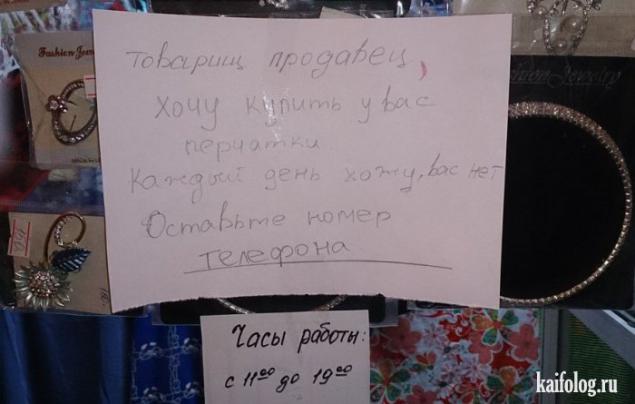 Fashion Jewelry
Товарищ продавец,
хочу купить у вас
перчатки.
Каждый день хожу, вас нет
Оставьте номер
телефона
Часы работы:
с 11⁰⁰ до 19⁰⁰
kaifolog.ru